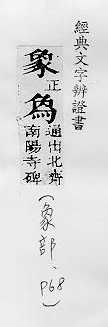 經典文字辨證書
象正
為通出北齊
南陽寺碑
(象部、
P68)